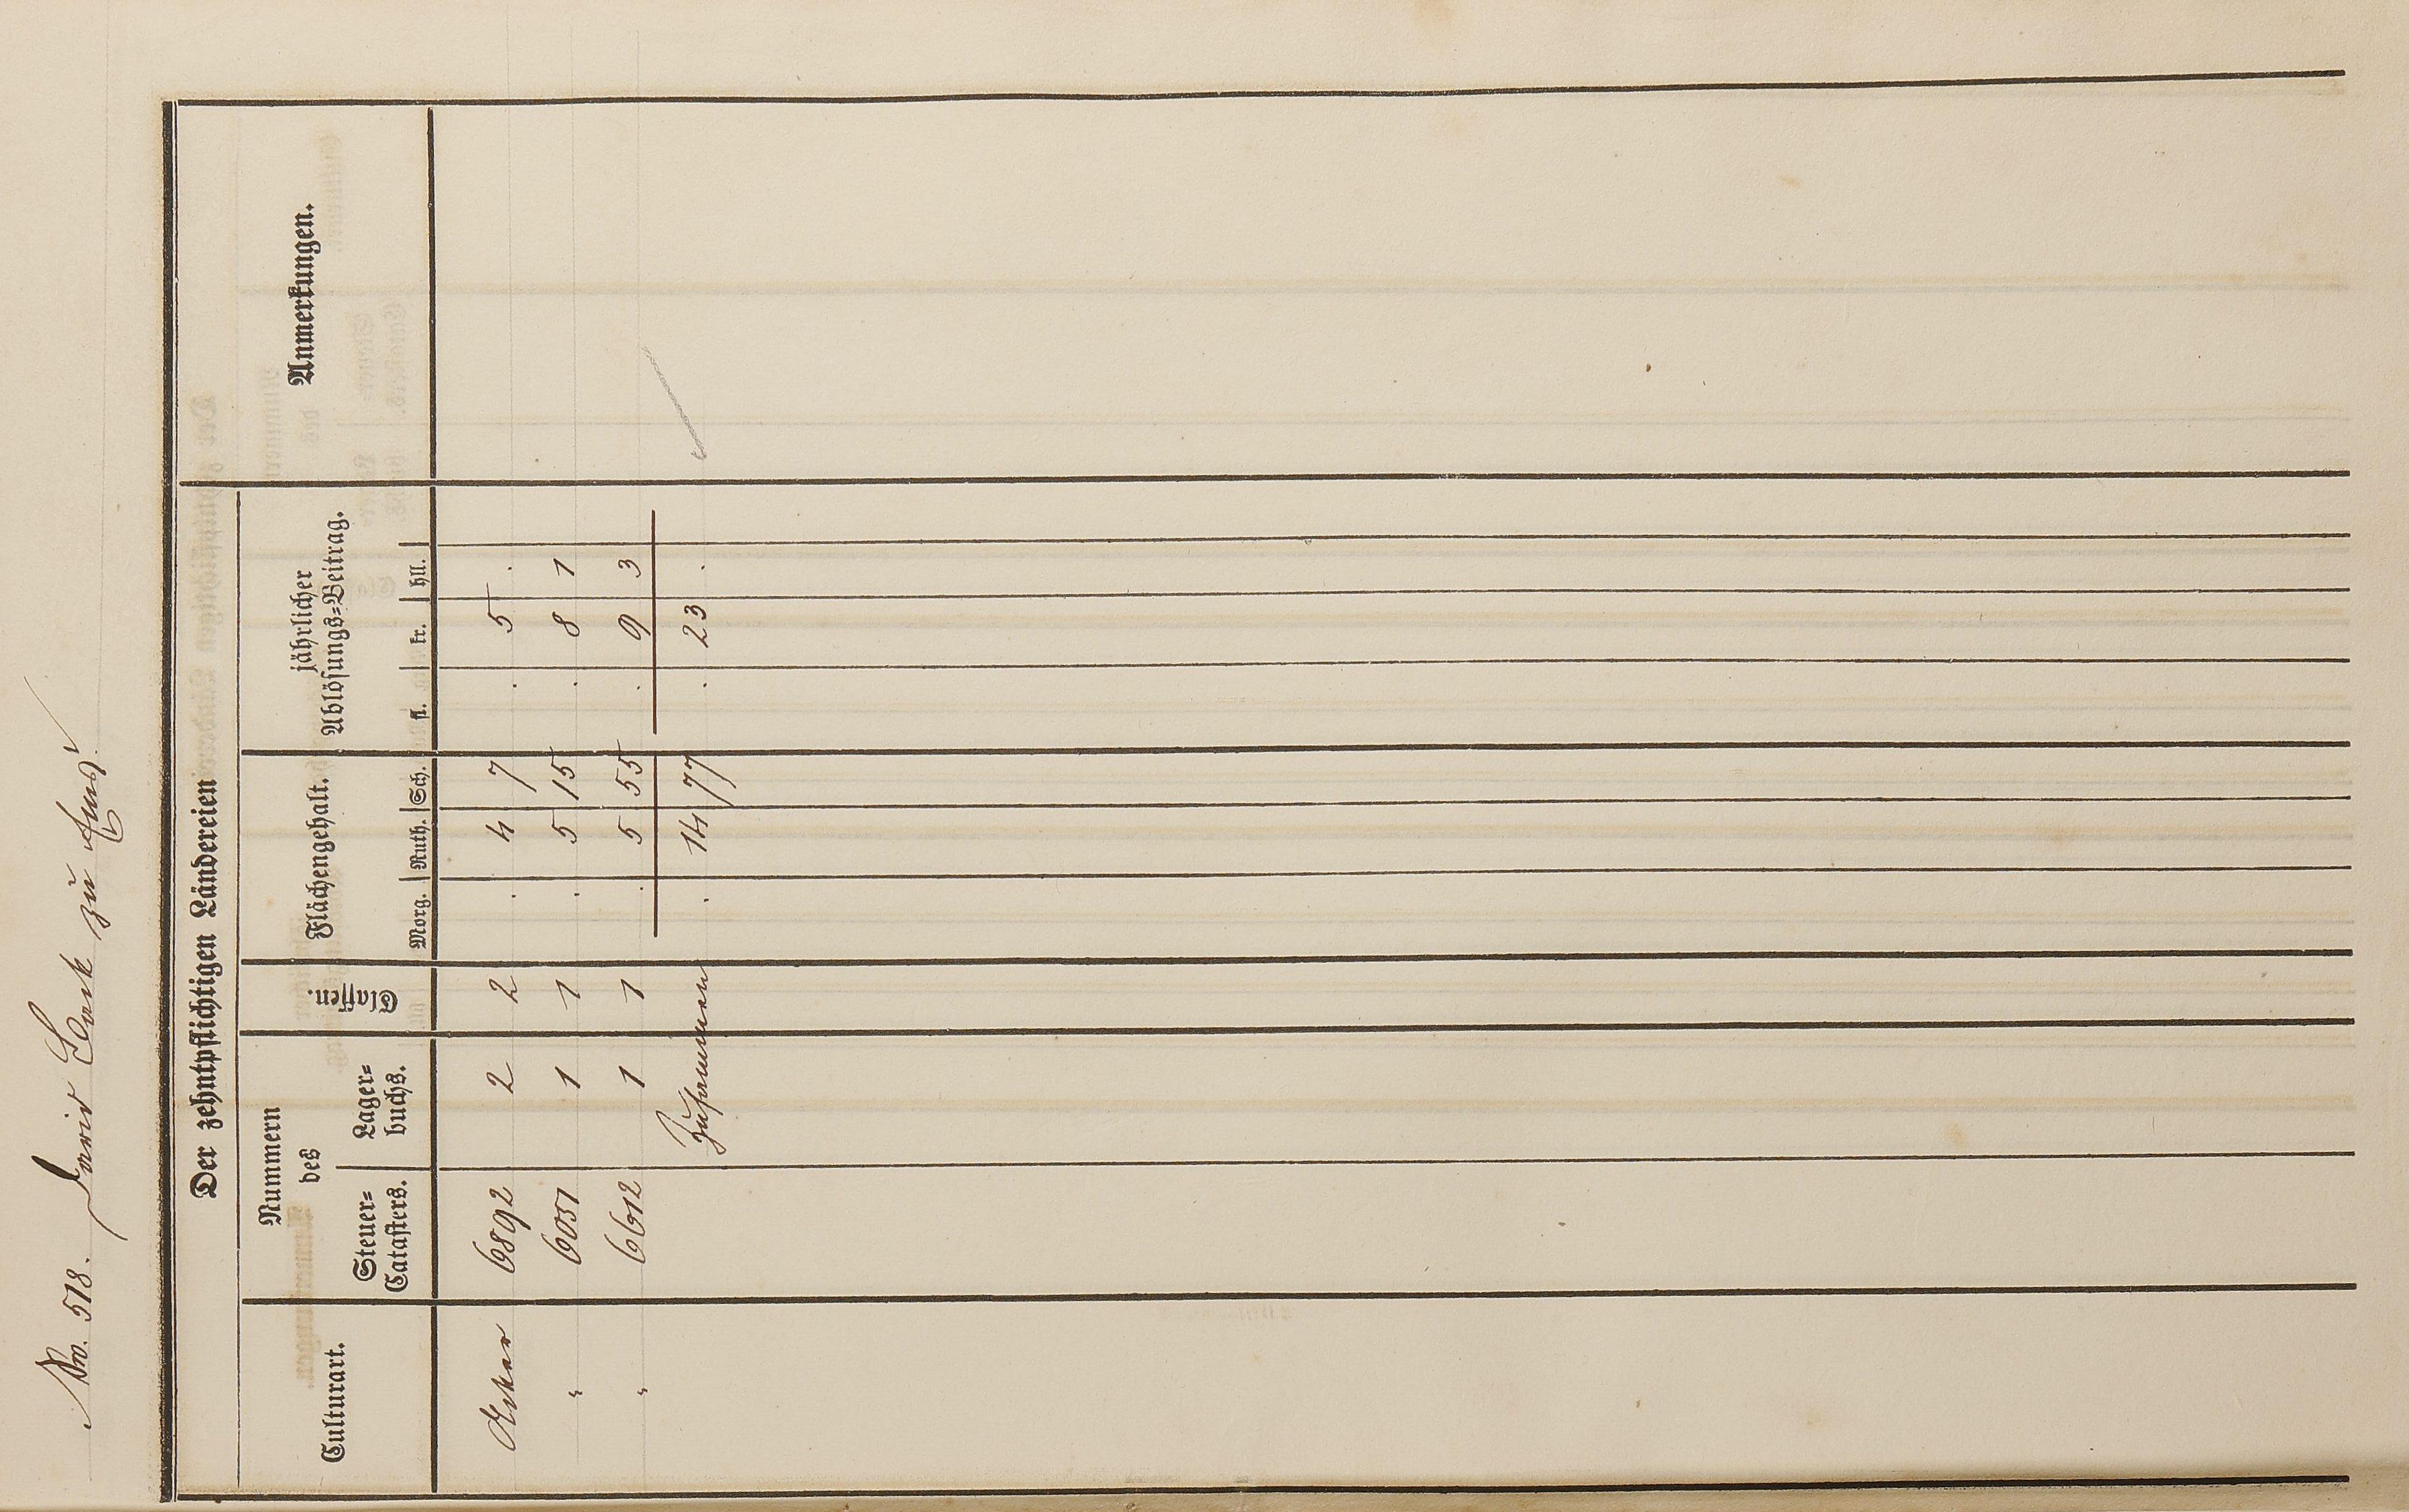 No. 518. David Back zu
Der zehntpflichtigen Ländereien
Anmerkungen.
Culturart.
Nummern
des
Steuer=
Catasters.
Lager=
buchs.
Classen.
Flächengehalt.
Morg. Ruth. Sch.
jährlicher
Ablösungs=Beitrag.
fl. kr. hll.
Acker 6892 2 2 . 4 7 . 5 .
" 6051 1 1 . 5 15 . 8 1
" 6612 1 1 . 5 55 . 9 3
Zusammen . 14 77 . 23 .